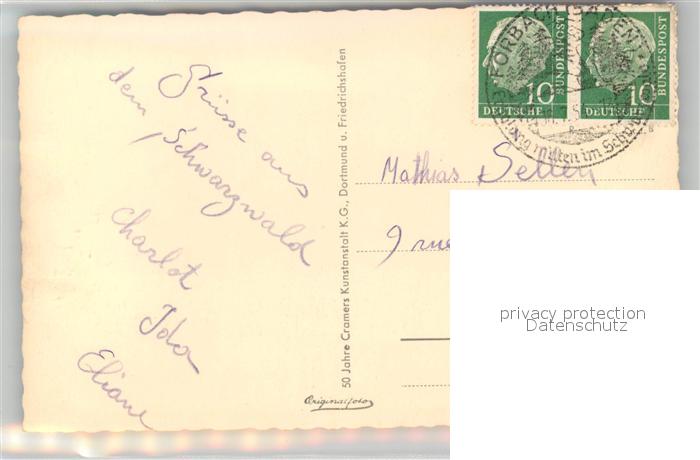 Grüsse aus
dem Schwarzwald
Charlot
Ida
Eliane
50 Jahre Cramers Kunstanstalt K.G., Dortmund u. Friedrichshafen
Originalfoto
10 BUNDESPOST
DEUTSCHE
10 BUNDESPOST
DEUTSCHE
FORBACH (BADEN)
mitten im
Mathias
9 rue
privacy protection
Datenschutz